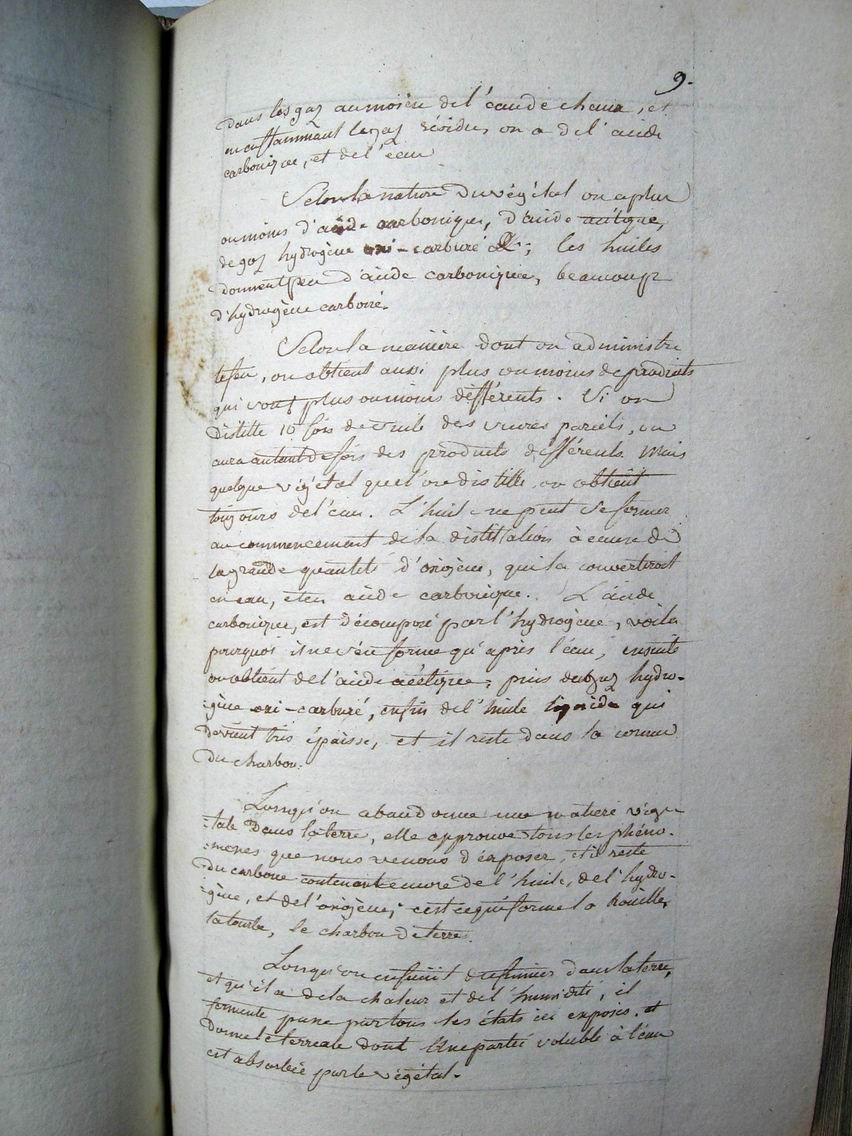 9.
dans les gaz au moien de l'eau de chaux, et
en enflammant le gaz résidu, on a de l'acide
carbonique, et de l'eau.
Selon la nature du végétal on a plus
ou moins d'acide carbonique, d'acide acétique,
de gaz hydrogène oxi-carburé &c; les huiles
donnent peu d'acide carbonique, beaucoup
d'hydrogène carboné.
Selon la manière dont on administre
le feu, on obtient aussi plus ou moins de produits
qui sont plus ou moins différents. Si on
distille 10 fois de suite des sucres pareils, on
aura autant de fois des produits différents. Mais
quelque végétal que l'on distille, on obtient
toujours de l'eau. L'huile ne peut se former
au commencement de la distillation à cause de
la grande quantité d'oxigène, qui la convertiroit
en eau, et en acide carbonique. L'acide
carbonique, est décomposé par l'hydrogène, voila
pourquoi il ne s'en forme qu'après l'eau, ensuite
on obtient de l'acide acétique; puis du gaz hydro-
-gène oxi-carburé, enfin de l'huile liquide qui
devient très épaisse, et il reste dans la cornue
du charbon.
Lorsqu'on abandonne une matière végé-
-tale dans la terre, elle épprouve tous les phéno-
-mènes que nous venons d'exposer, et il reste
du carbone contenant encore de l'huile, de l'hydro-
-gène, et de l'oxigène; c'est ce qui forme la houille,
la tourbe, le charbon de terre.
Lorsqu'on enfouit du fumier dans la terre,
et qu'il a de la chaleur et de l'humidité, il
fermente passe par tous les états ici exposés, et
donne le terreau dont une partie soluble à l'eau
est absorbée par le végétal.